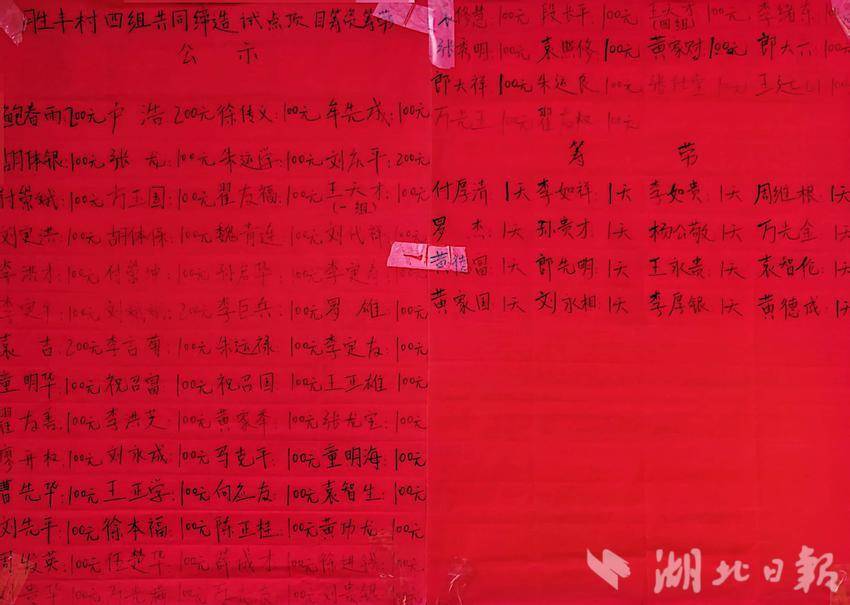 胜丰村四组共同缔造试点项目筹资筹劳
公示
鲍春雨:200元 浩:200元 徐传义:100元 牟先成:100元
胡体银:100元 张龙:100元 朱运学:100元 刘庆平:200元
付崇斌:100元 方正国:100元 翟友福:100元 王大才(一组):100元
刘宜洪:100元 胡体保:100元 魏青连:100元 刘代祥:100元
李洪才:100元 付崇坤:100元 孙启华:100元 李宜
李宜 200元 李巨兵:100元 罗雄:100元
袁吉:200元 李言菊:100元 朱运禄:100元 李定友:100元
童明华:100元 祝召富:100元 祝召国:100元 王正雄:100元
翟友善:100元 李洪芝:100元 黄家奉:100元 张龙宝:100元
廖开权:100元 刘永成:100元 马克平:100元 童明海:100元
曹先华:100元 王正学:100元 向友:100元 袁智生:100元
刘先平:100元 徐本福:100元 陈正桂:100元 黄功龙:100元
周发英:100元 伍楚华:100元 薛成才:100元 100元
修慧:100元 段长平:100元 王大才(四组):100元 李绪东:100元
张秀明:100元 袁照修:100元 黄家财:100元 郎大六:100元
郎大祥:100元 朱运良:100元 100元 100元
万先玉:100元 翟友权:100元
筹劳
付厚清:1天 李如祥:1天 李如贵:1天 周维根:1天
罗杰:1天 孙贵才:1天 杨公敬:1天 万先金:1天
黄德富:1天 郎先明:1天 王永贵:1天 袁智伦:1天
黄家国:1天 刘永相:1天 李厚银:1天 黄德成:1天
湖北日报